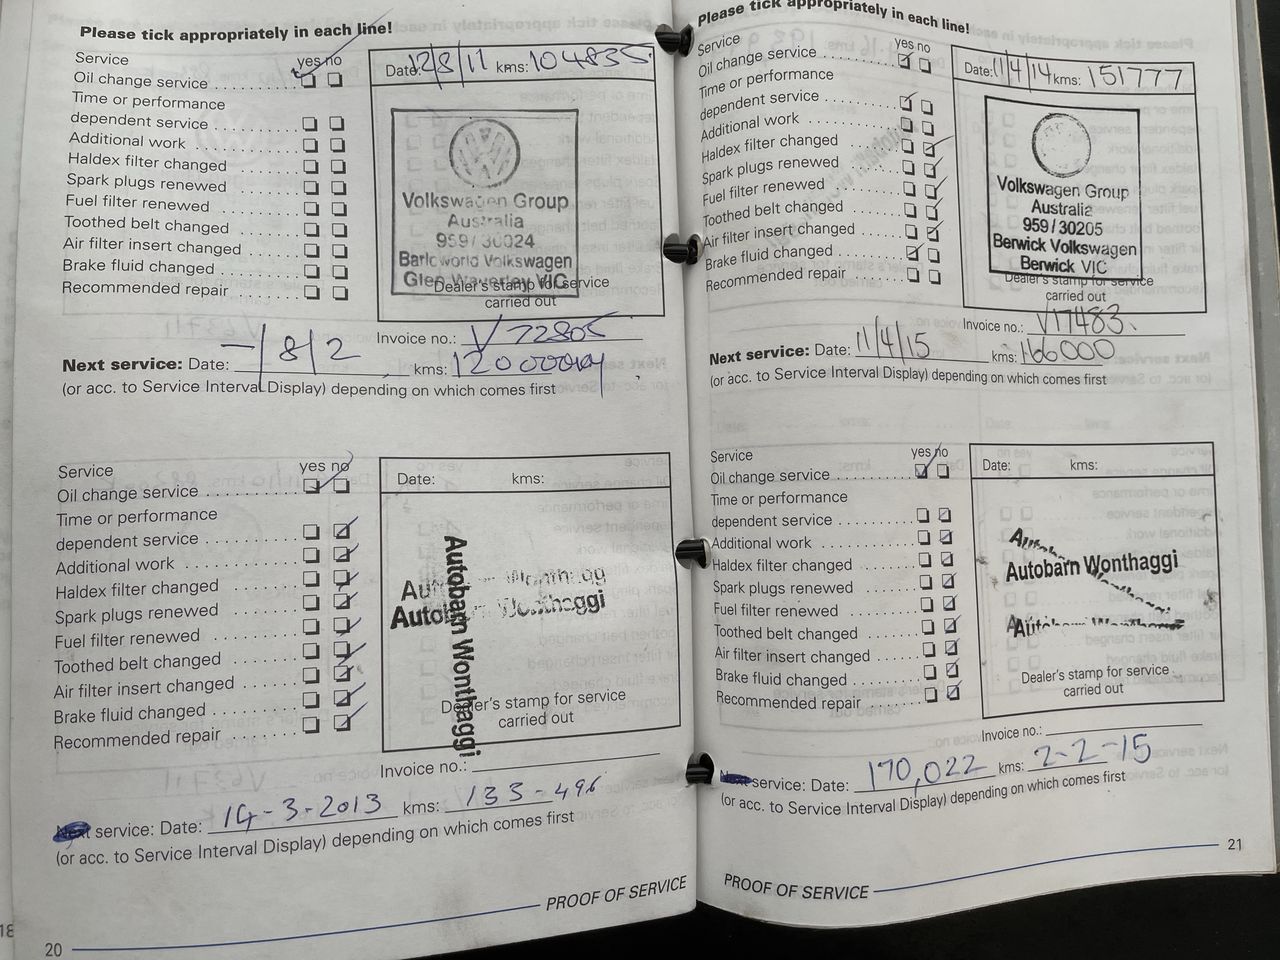 Please tick appropriately in each line!
Service yes no
Oil change service
Time or performance
dependent service
Additional work
Haldex filter changed
Spark plugs renewed
Fuel filter renewed
Toothed belt changed
Air filter insert changed
Brake fluid changed
Recommended repair
Date: 12/8/11 kms: 104835
Volkswagen Group
Australia
959/30024
Barloworld Volkswagen
Glen Waverley VIC
Dealer's stamp for service
carried out
Invoice no.: V72805
Next service: Date: -/8/2 kms: 120000
(or acc. to Service Interval Display) depending on which comes first
Service yes no
Oil change service
Time or performance
dependent service
Additional work
Haldex filter changed
Spark plugs renewed
Fuel filter renewed
Toothed belt changed
Air filter insert changed
Brake fluid changed
Recommended repair
Date: kms:
Autobarn Wonthaggi
Autobarn Wonthaggi
Autobarn Wonthaggi
Dealer's stamp for service
carried out
Invoice no.:
service: Date: 14-3-2013 kms: 133-496
(or acc. to Service Interval Display) depending on which comes first
PROOF OF SERVICE
20
18
Please tick appropriately in each line!
Service yes no
Oil change service
Time or performance
dependent service
Additional work
Haldex filter changed
Spark plugs renewed
Fuel filter renewed
Toothed belt changed
Air filter insert changed
Brake fluid changed
Recommended repair
Date: 11/4/14 kms: 151777
Volkswagen Group
Australia
959/30205
Berwick Volkswagen
Berwick VIC
Dealer's stamp for service
carried out
Invoice no.: V17483
Next service: Date: 11/4/15 kms: 166000
(or acc. to Service Interval Display) depending on which comes first
Service yes no
Oil change service
Time or performance
dependent service
Additional work
Haldex filter changed
Spark plugs renewed
Fuel filter renewed
Toothed belt changed
Air filter insert changed
Brake fluid changed
Recommended repair
Date: kms:
Autobarn Wonthaggi
Autobarn Wonthaggi
Dealer's stamp for service
carried out
Invoice no.:
service: Date: 170,022 kms: 2-2-15
(or acc. to Service Interval Display) depending on which comes first
PROOF OF SERVICE
21